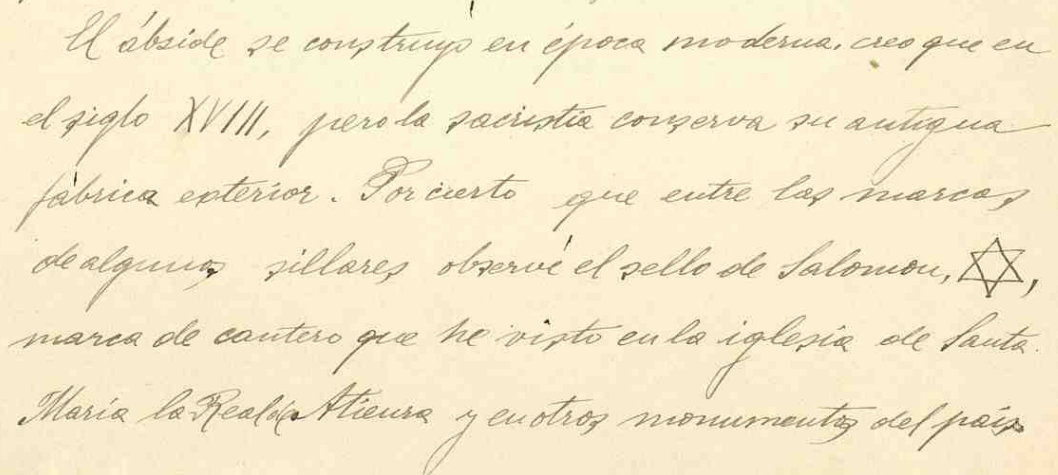 El ábside se construyó en época moderna, creo que en
el siglo XVIII, pero la sacristía conserva su antigua
fábrica exterior. Por cierto que entre las marcas
de algunos sillares observé el sello de Salomon, ✡,
marca de cantero que he visto en la iglesia de Santa
María la Real de Atienza y en otros monumentos del país